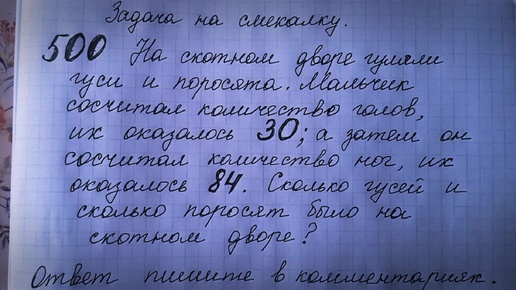 Задача на смекалку.
500 На скотном дворе гуляли
гуси и поросята. Мальчик
сосчитал количество голов,
их оказалось 30; а затем он
сосчитал количество ног, их
оказалось 84. Сколько гусей и
сколько поросят было на
скотном дворе?
Ответ пишите в комментариях.